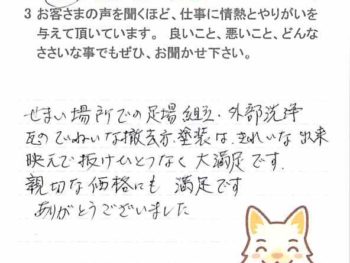 3 お客さまの声を聞くほど、仕事に情熱とやりがいを
与えて頂いています。 良いこと、悪いこと、どんな
ささいな事でもぜひ、お聞かせ下さい。
せまい場所での足場組立・外部洗浄
瓦のていねいな撤去方、塗装は、きれいな出来
映えで抜けひとつなく大満足です。
親切な価格にも 満足です
ありがとうございました